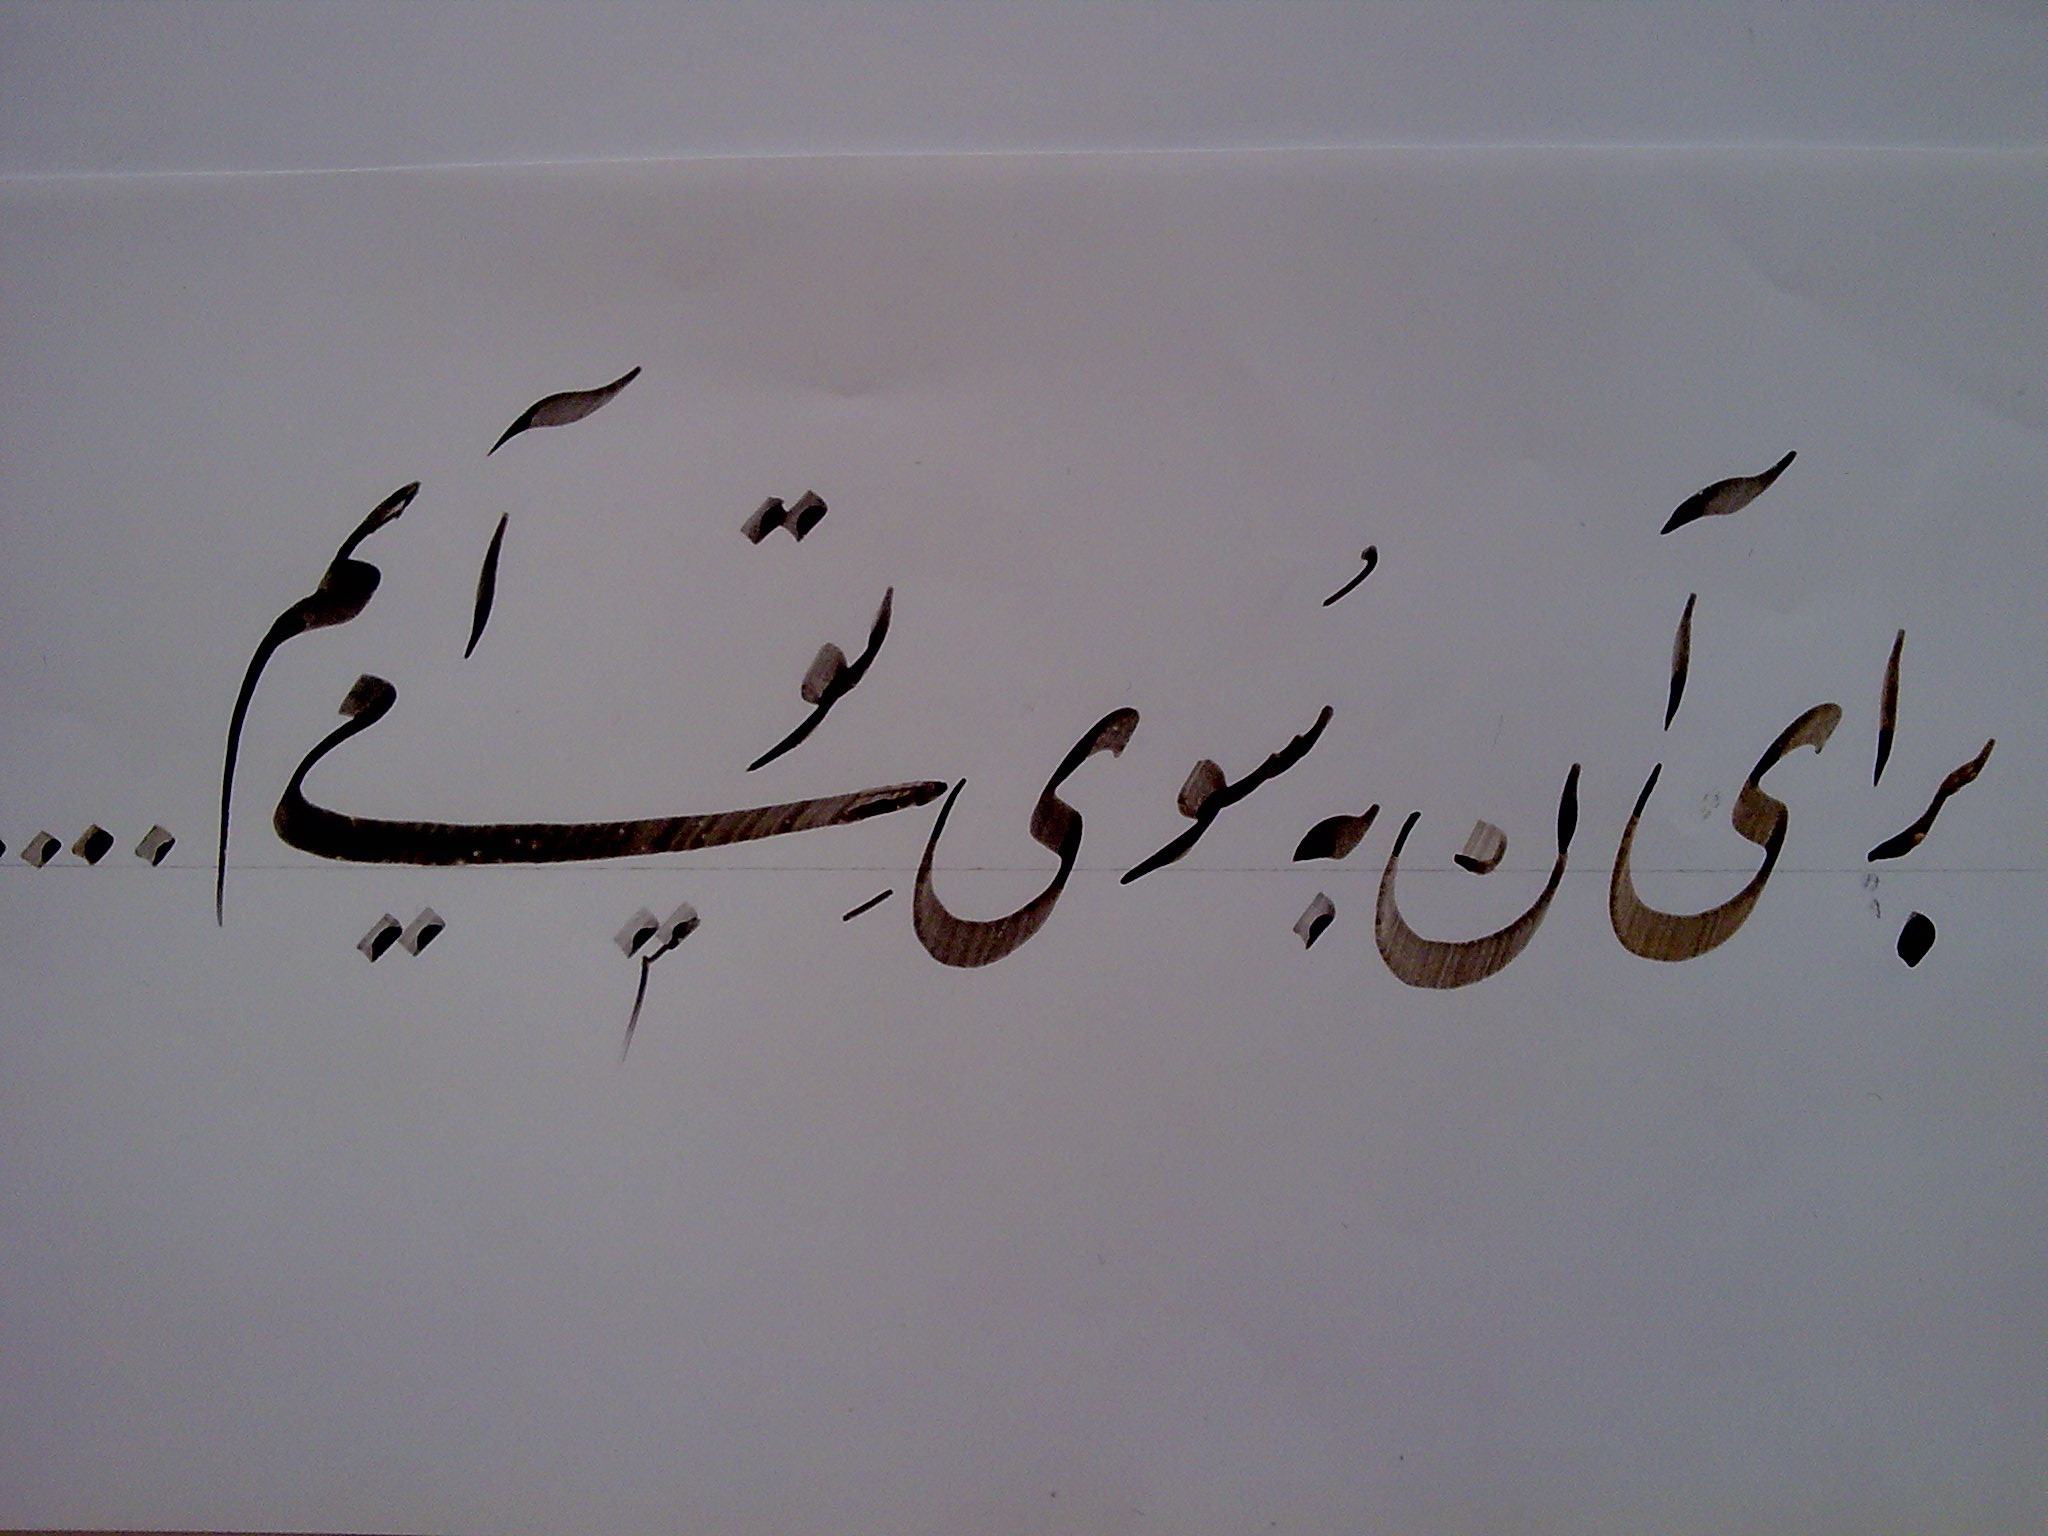 برای آن به سُویِ تو می آیم ....